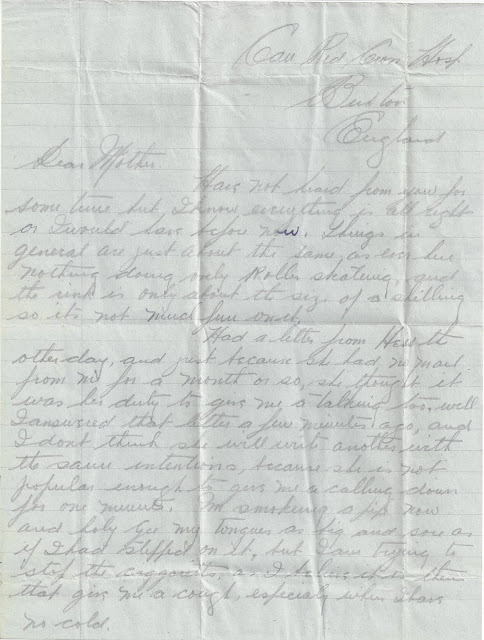 Can Red Cross Hosp
Buxton
England
Dear Mother
Have not heard from you for
some time but, I know everything is all right
or I would have before now. Things in
general are just about the same, as ever here
nothing doing only Roller skateing, and
the rink is only about the size of a shilling
so its not much fun on it.
Had a letter from the
other day, and just because she had no mail
from me for a month or so, she thought it
was her duty to give me a talking too, well
I answered that letter a few minutes ago, and
I dont think she will write another with
the same intentions, because she is not
popular enough to give me a calling down
for one minute. I'm smokeing a pip now
and holy Gee my tongues as big and sore as
if I had stepped on it, but I am trying to
stop the cigarets, as I believe it is them
that give me a cough, especialy when I have
no cold.